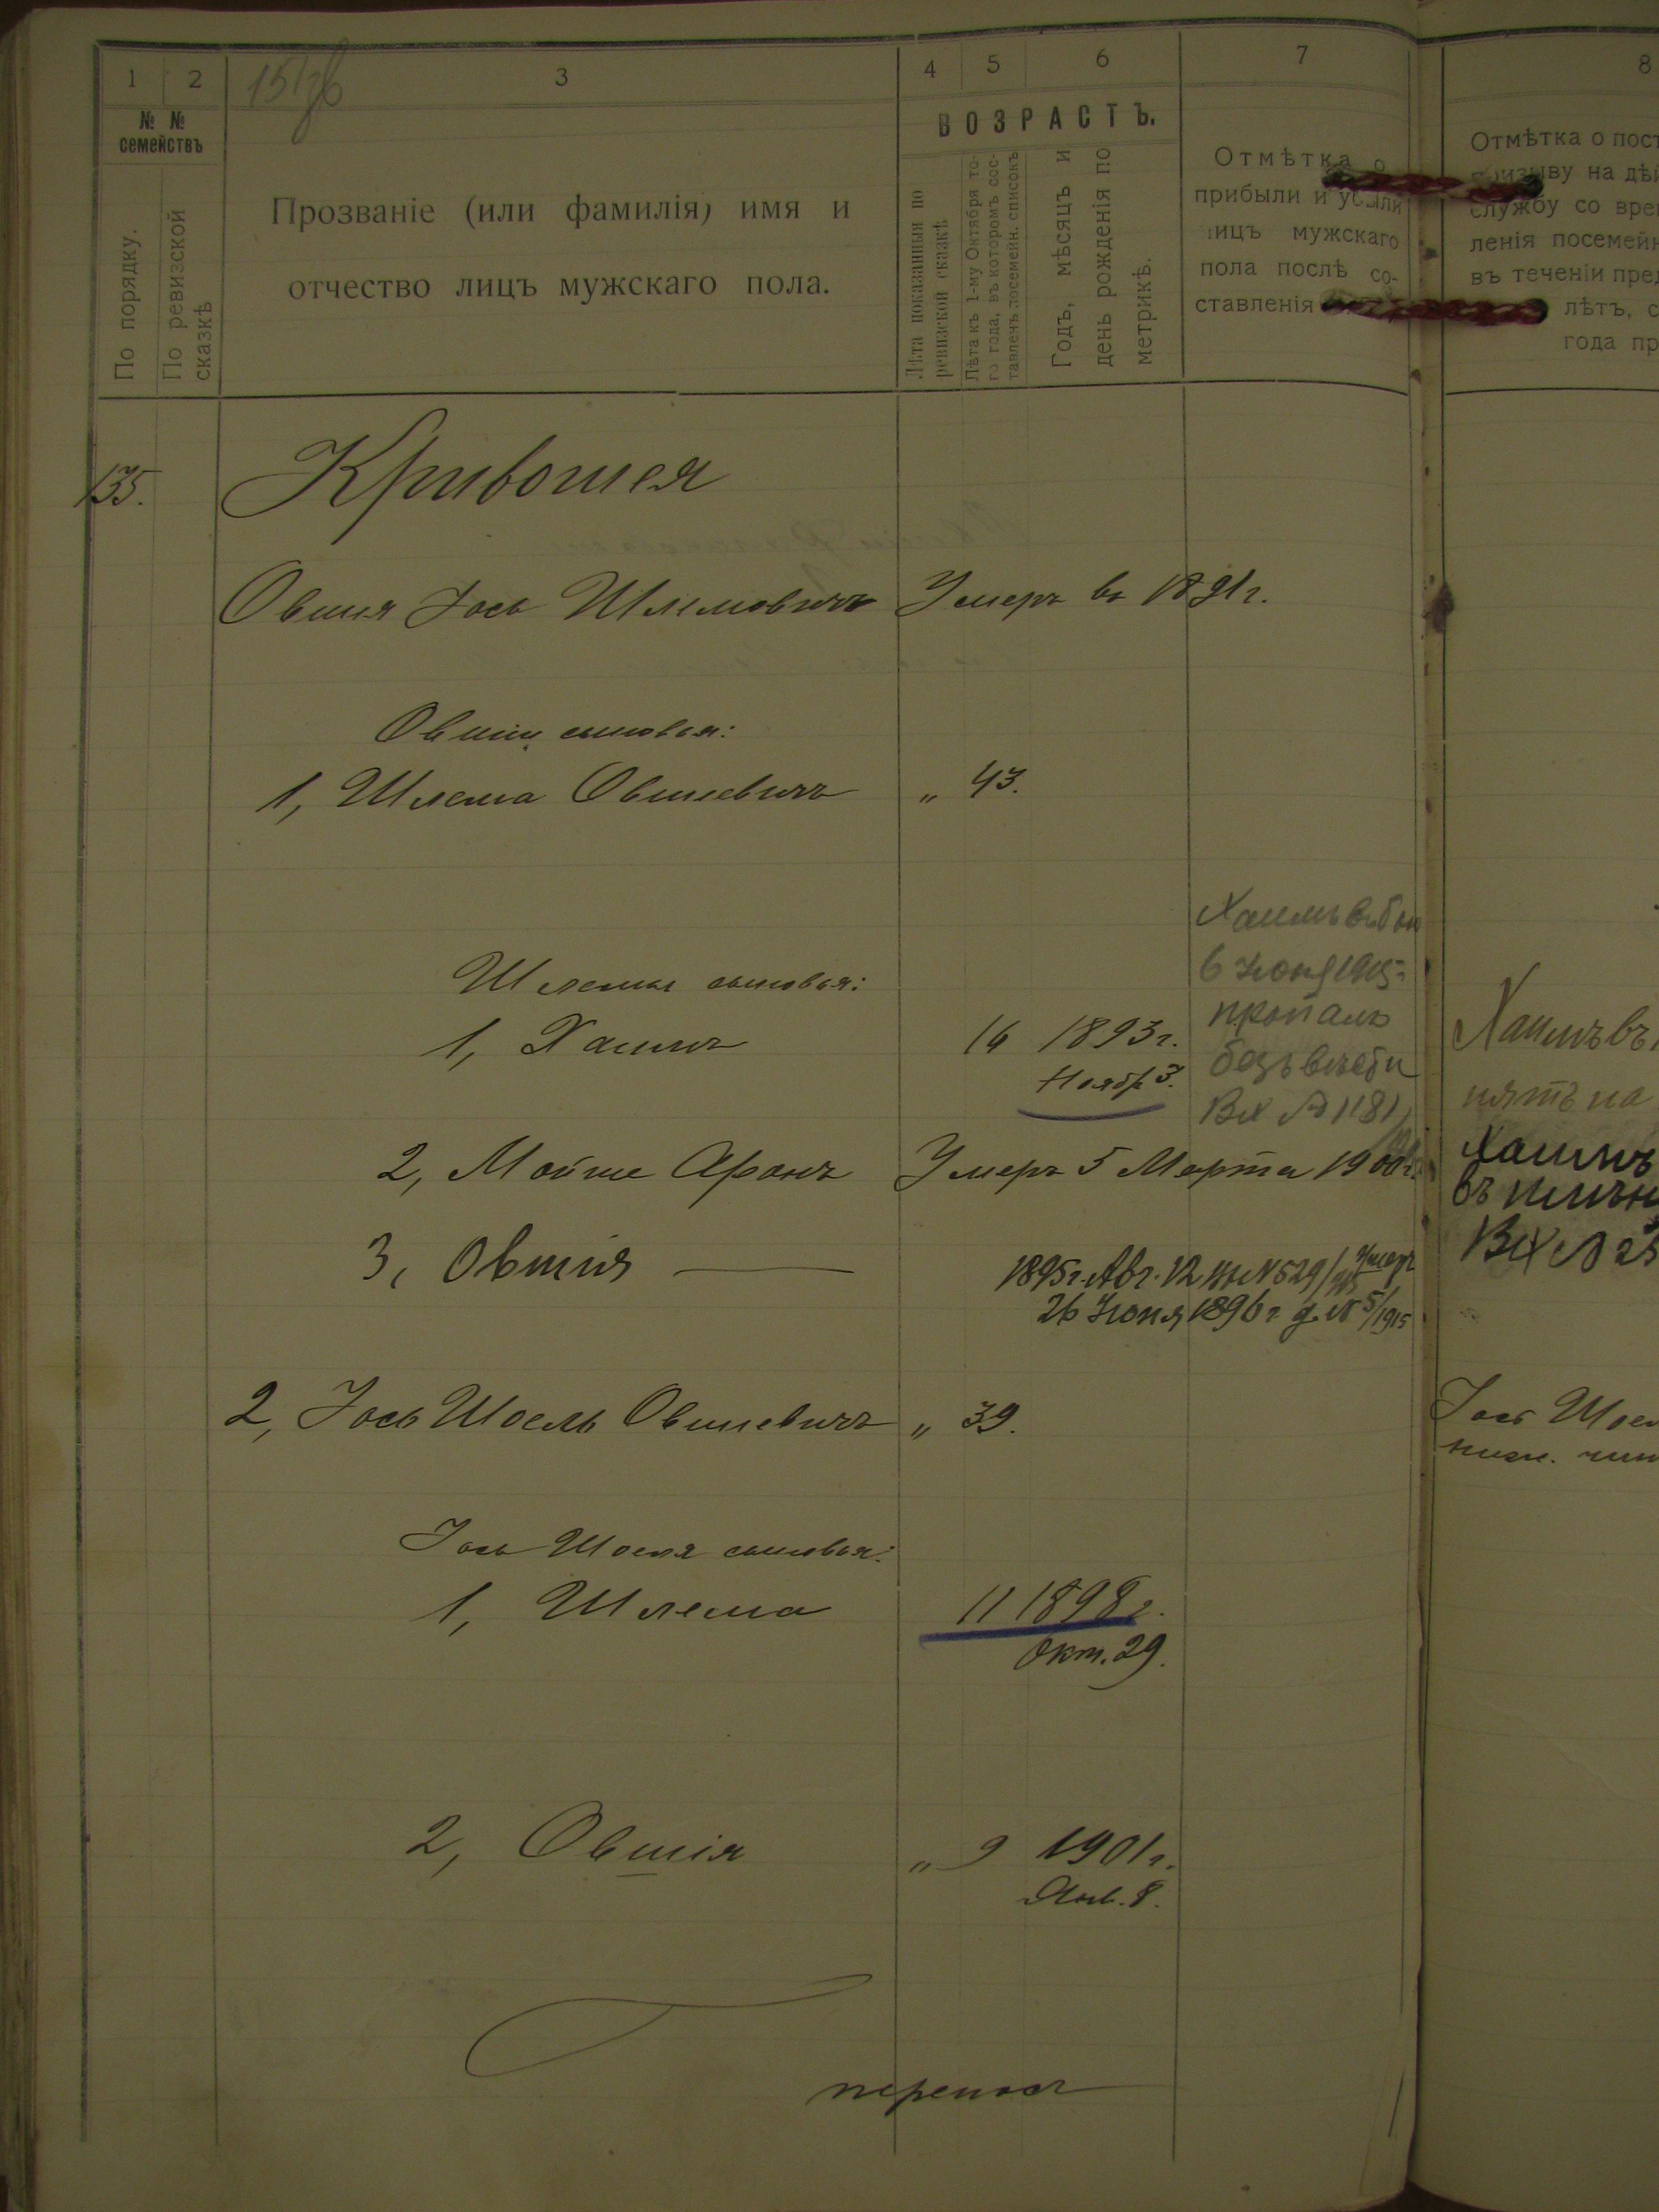 1 2 3 4 5 6 7 8
№ №
семействъ
По порядку.
По ревизской
сказкѣ
Прозваніе (или фамилія) имя и
отчество лицъ мужскаго пола.
ВОЗРАСТЪ.
Лѣта показанныя по
ревизской сказкѣ
Лѣта къ 1-му Октября то-
го года, въ которомъ сос-
тавленъ посемейн. списокъ
Годъ, мѣсяцъ и
день рожденія по
метрикѣ.
Отмѣтка о
прибыли и убыли
лицъ мужскаго
пола послѣ со-
ставленія
Отмѣтка о пост
призыву на дѣй
службу со врем
ленія посемейн
въ теченіи пред
лѣтъ, с
года пр
135. Кривошея
Овшія Іось Шлемовичъ Умеръ въ 1891 г.
Овшіи сыновья:
1, Шлема Овшиевичъ „ 43.
Шлемы сыновья:
1, Хаимъ 16 1893 г.
Ноябр 3.
Хаимъ въ бою
6 Іюня 1915
пропалъ
безъ вѣсти
Вх № 1181
Хаимъ въ
нятъ на
2, Мойше Аронъ Умеръ 5 Марта 1900 г.
Хаимъ
въ плѣн
Вх № 25
3, Овшія — 1895 г. Авг. 12 № 529/ Умеръ
26 Іюня 1896 г д. № 5/1915
2, Іось Шоель Овшиевичъ „ 39.
Іось Шоел
нижн. чин
Іось Шоеля сыновья:
1, Шлема 11 1898 г.
Окт. 29.
2, Овшія „ 9 1901 г.
Янв. 8.
переносъ